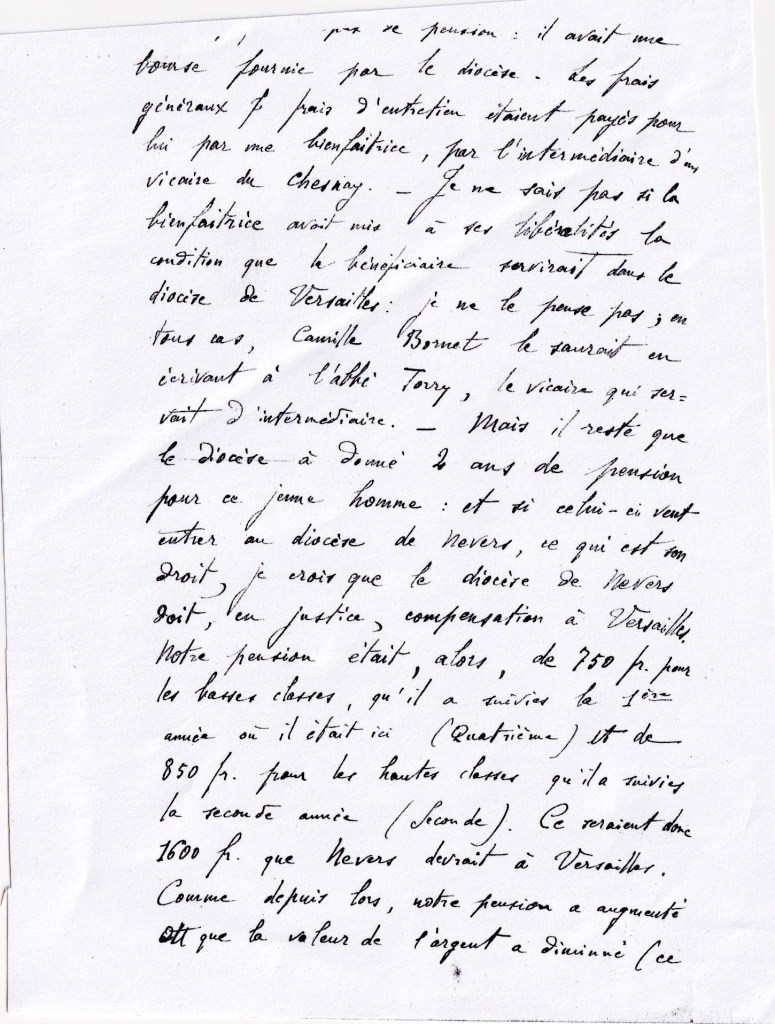 pas de pension : il avait une
bourse fournie par le diocèse. Les frais
généraux & frais d'entretien étaient payés pour
lui par une bienfaitrice, par l'intermédiaire d'un
vicaire du Chesnay. — Je ne sais pas si la
bienfaitrice avait mis à ses libéralités la
condition que le bénéficiaire servirait dans le
diocèse de Versailles : je ne le pense pas ; en
tous cas, Camille Bornet le saurait en
écrivant à l'abbé Torry, le vicaire qui ser=
vait d'intermédiaire. — Mais il reste que
le diocèse a donné 2 ans de pension
pour ce jeune homme : et si celui-ci veut
entrer au diocèse de Nevers, ce qui est son
droit, je crois que le diocèse de Nevers
doit, en justice, compensation à Versailles.
Notre pension était, alors, de 750 fr. pour
les basses classes, qu'il a suivies la 1ère
année où il était ici (Quatrième) et de
850 fr. pour les hautes classes qu'il a suivies
la seconde année (Seconde). Ce seraient donc
1600 fr. que Nevers devrait à Versailles.
Comme depuis lors, notre pension a augmenté
et que la valeur de l'argent a diminué (ce